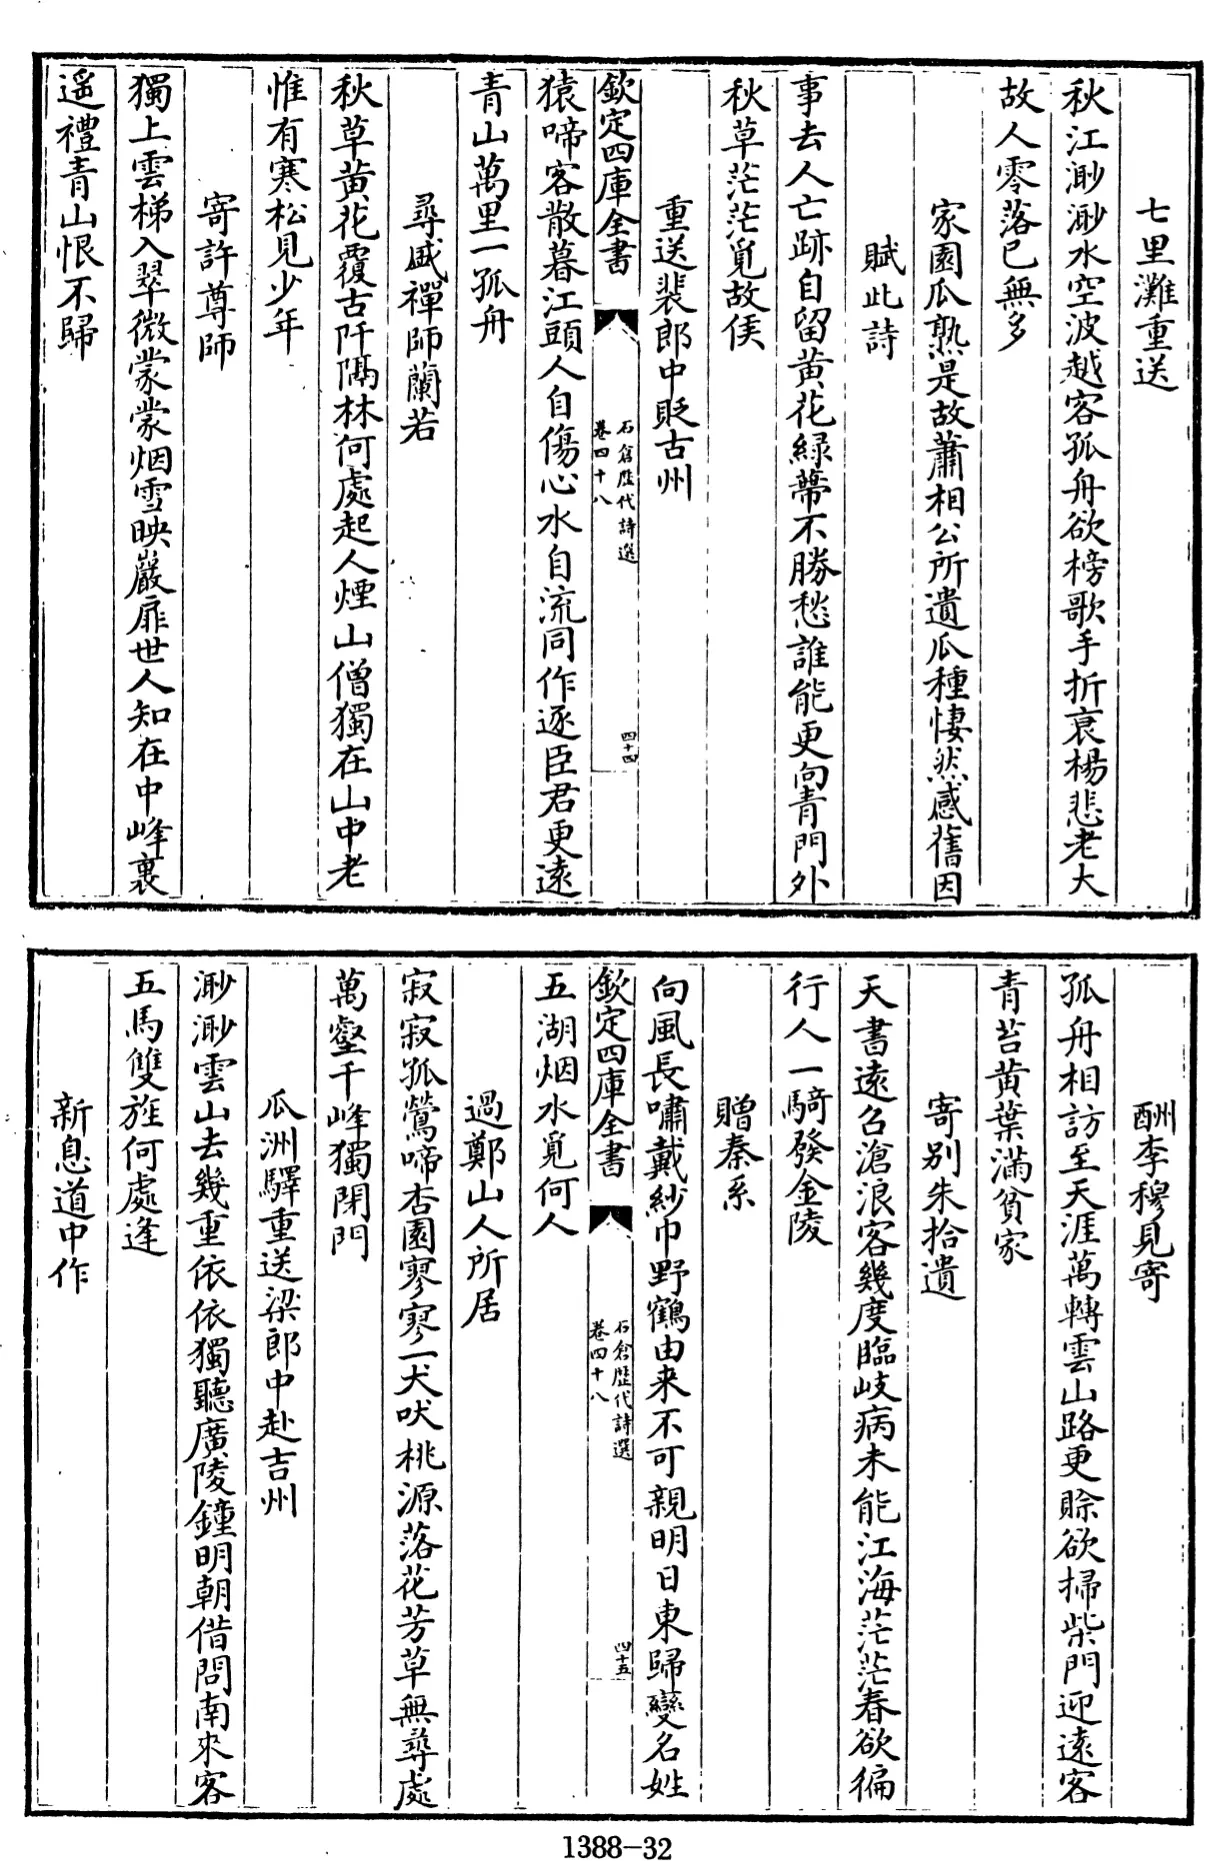 七里灘重送
秋江渺渺水空波越客孤舟欲榜歌手折衰楊悲老大
故人零落已無多
家園瓜熟是故蕭相公所遺瓜種悽然感舊因
賦此詩
事去人亡跡自留黄花緑蔕不勝愁誰能更向青門外
秋草茫茫覓故侯
重送裴郎中貶吉州
欽定四庫全書
石倉歷代詩選
卷四十八
四十四
猿啼客散暮江頭人自傷心水自流同作逐臣君更逺
青山萬里一孤舟
尋盛禪師蘭若
秋草黄花覆古阡隔林何處起人煙山僧獨在山中老
惟有寒松見少年
寄許尊師
獨上雲梯入翠微蒙蒙烟雪映巖扉世人知在中峰裏
遥禮青山恨不歸
酬李穆見寄
孤舟相訪至天涯萬轉雲山路更賒欲掃柴門迎逺客
青苔黄葉滿貧家
寄别朱拾遺
天書逺召滄浪客幾度臨岐病未能江海茫茫春欲徧
行人一騎發金陵
贈秦系
向風長嘯戴紗巾野鶴由来不可親明日東歸變名姓
欽定四庫全書
石倉歷代詩選
卷四十八
四十五
五湖烟水覓何人
過鄭山人所居
寂寂孤鶯啼杏園寥寥一犬吠桃源落花芳草無尋處
萬壑千峰獨閉門
瓜洲驛重送梁郎中赴吉州
渺渺雲山去幾重依依獨聽廣陵鐘明朝借問南來客
五馬雙旌何處逢
新息道中作
1388-32